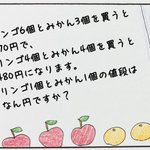 ンゴ6個とみかん3個を買うと
70円で、
リンゴ4個とみかん4個を買うと
480円になります。
リンゴ1個とみかん1個の値段は
なん円ですか？